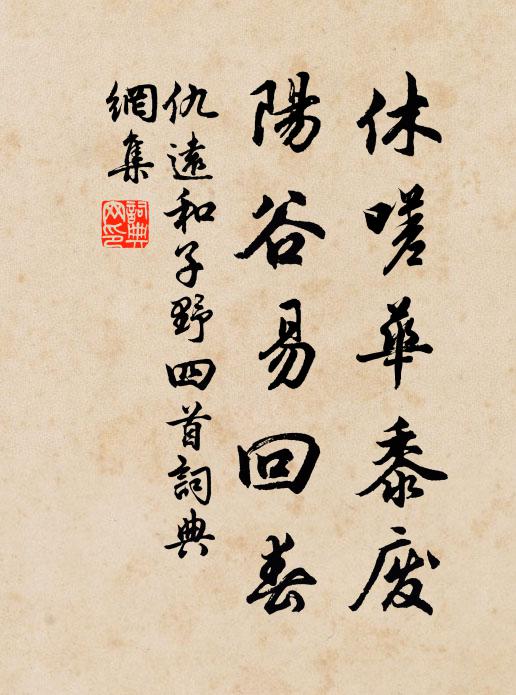 休嗟華黍废
陽谷易回春
仇遠和子野四首詞典
網集
詞典
网印